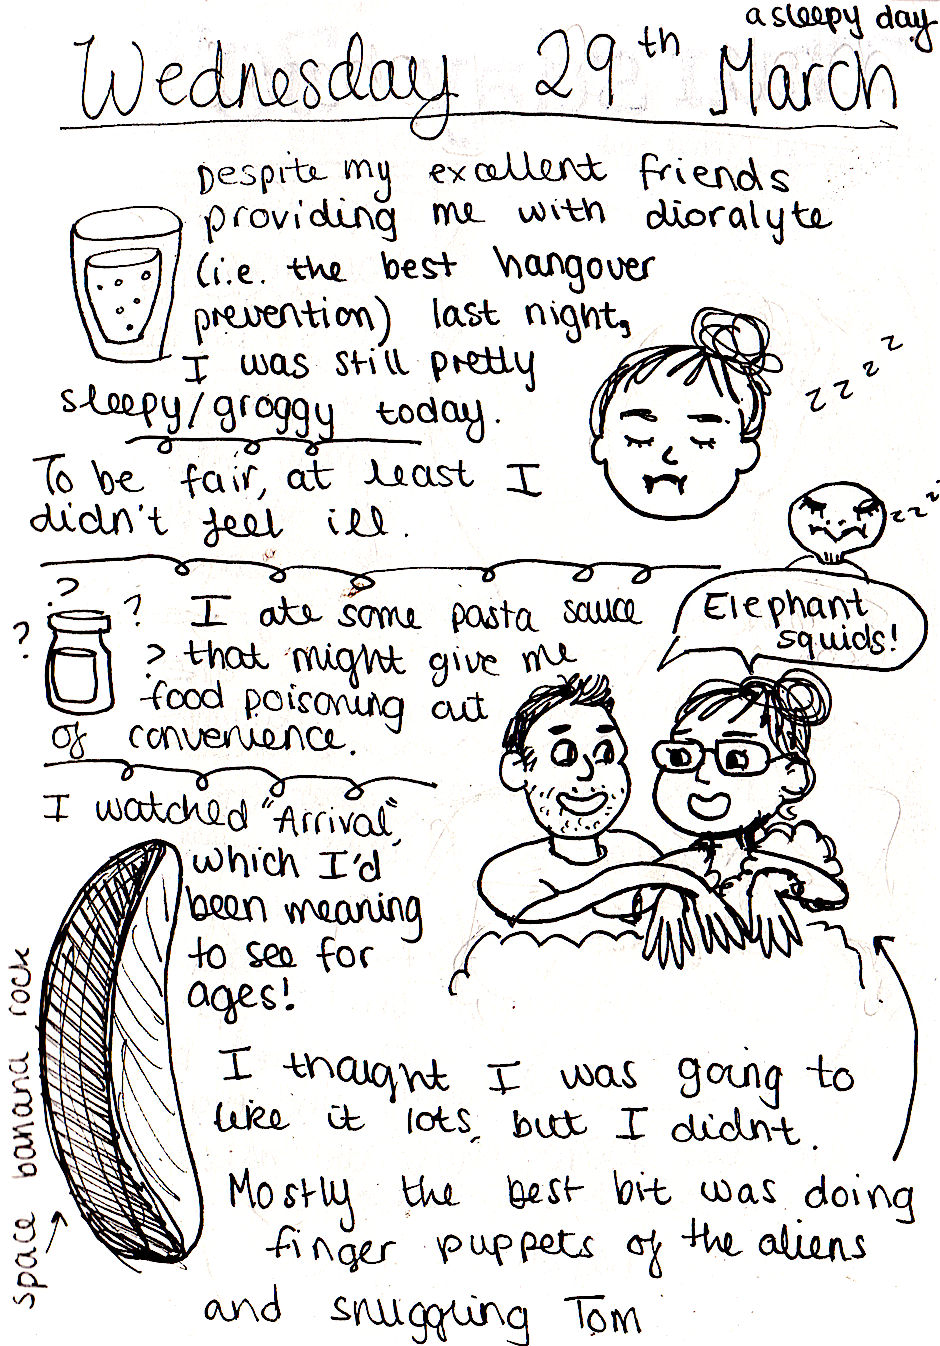 a sleepy day
Wednesday 29th March
Despite my excellent friends
providing me with dioralyte
(i.e. the best hangover
prevention) last night,
I was still pretty
sleepy/groggy today.
zzzz
To be fair, at least I
didn't feel ill.
zzz
? ? ? ?
I ate some pasta sauce
that might give me
food poisoning out
of convenience.
Elephant
squids!
I watched "Arrival",
which I'd
been meaning
to see for
ages!
space banana rock
I thought I was going to
like it lots, but I didnt.
Mostly the best bit was doing
finger puppets of the aliens
and snuggling Tom